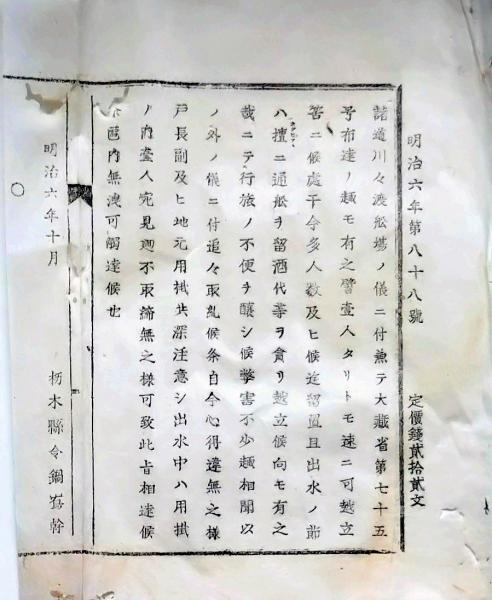 明治六年第八十八號
定價錢貳拾貳文
諸道川々渡船塲ノ儀ニ付兼テ大藏省第七十五
号布達ノ趣モ有之譬壹人タリトモ速ニ可越立
筈ニ候處于今多人数及ヒ候迄留置且出水ノ節
ハ擅ニ通船ヲ留酒代等ヲ貪リ越立候向モ有之
哉ニテ行旅ノ不便ヲ釀シ候弊害不少趣相聞以
ノ外ノ儀ニ付追々取糺候条自今心得違無之様
戸長副及ヒ地元用掛共深注意シ出水中ハ用掛
ノ内壹人宛見廻不取締無之様可致此旨相達候
区内無洩可觸達候也
明治六年十月
栃木縣令鍋嶌幹